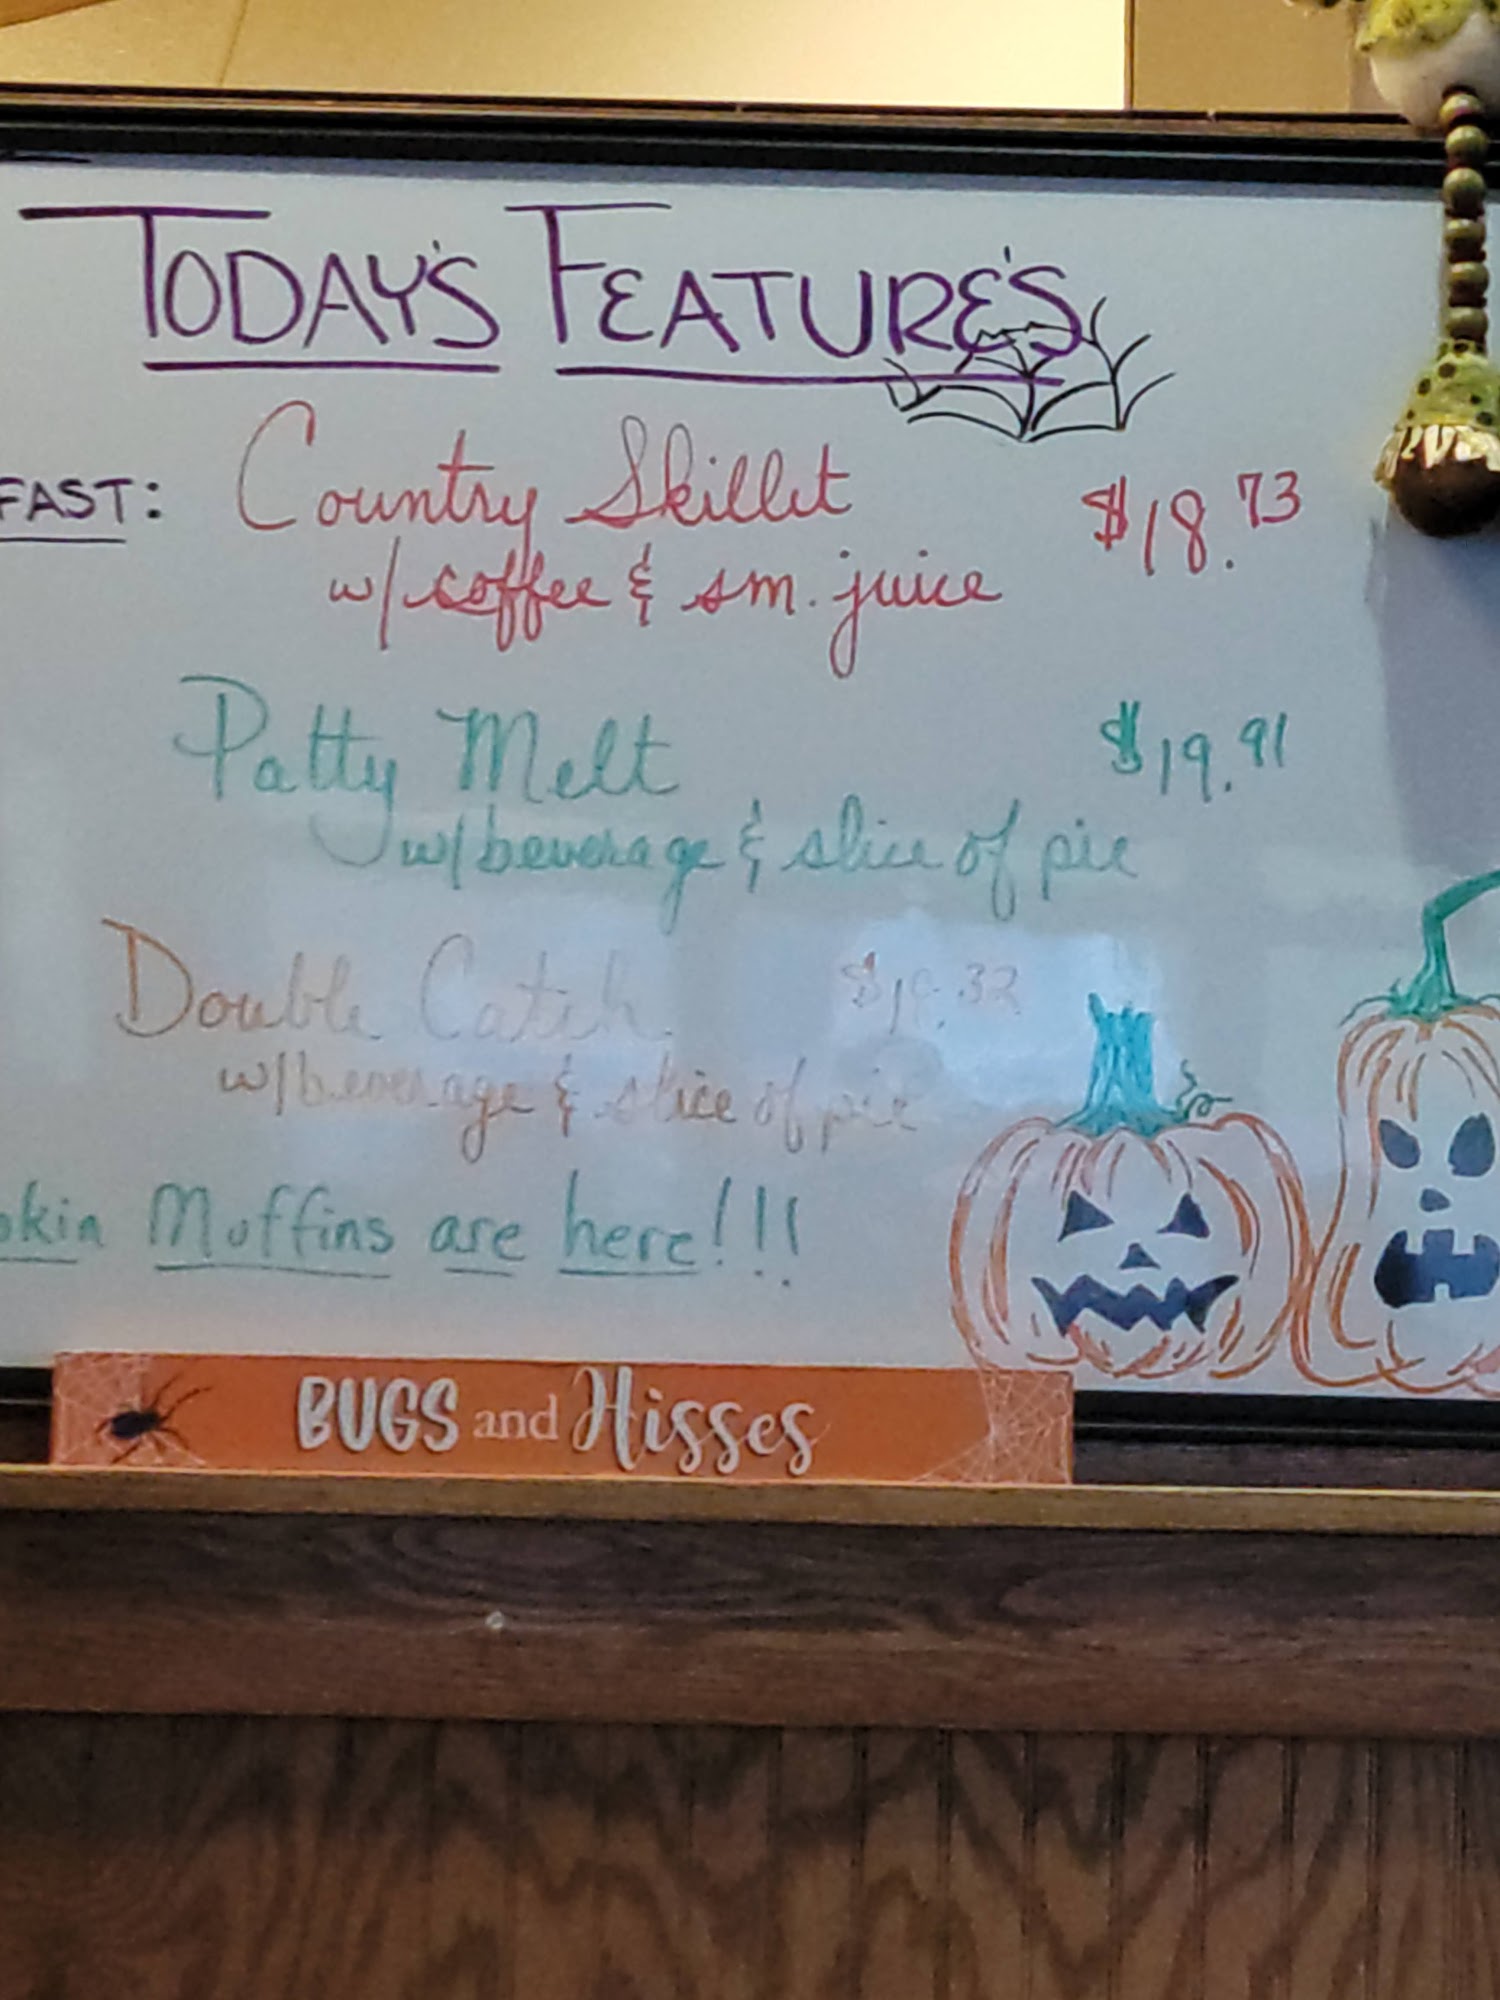 TODAY'S FEATURE'S
FAST: Country Skillet $18.73
w/ coffee & sm. juice
Patty Melt $19.91
w/ beverage & slice of pie
Double Catch
w/ beverage & slice of pie
pkin Muffins are here!!!
BUGS and Hisses